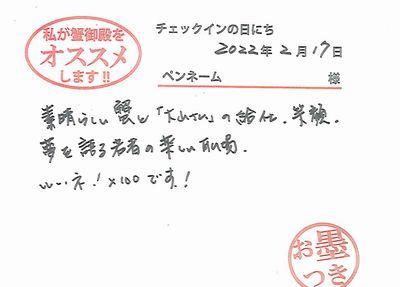 私が蟹御殿を
オススメ
します!!
チェックインの日にち
2022年2月17日
ペンネーム 様
素晴らしい蟹と「 」の給仕、笑顔、
夢を語る若者の楽しい
いいネ!×100です!
お墨
つき